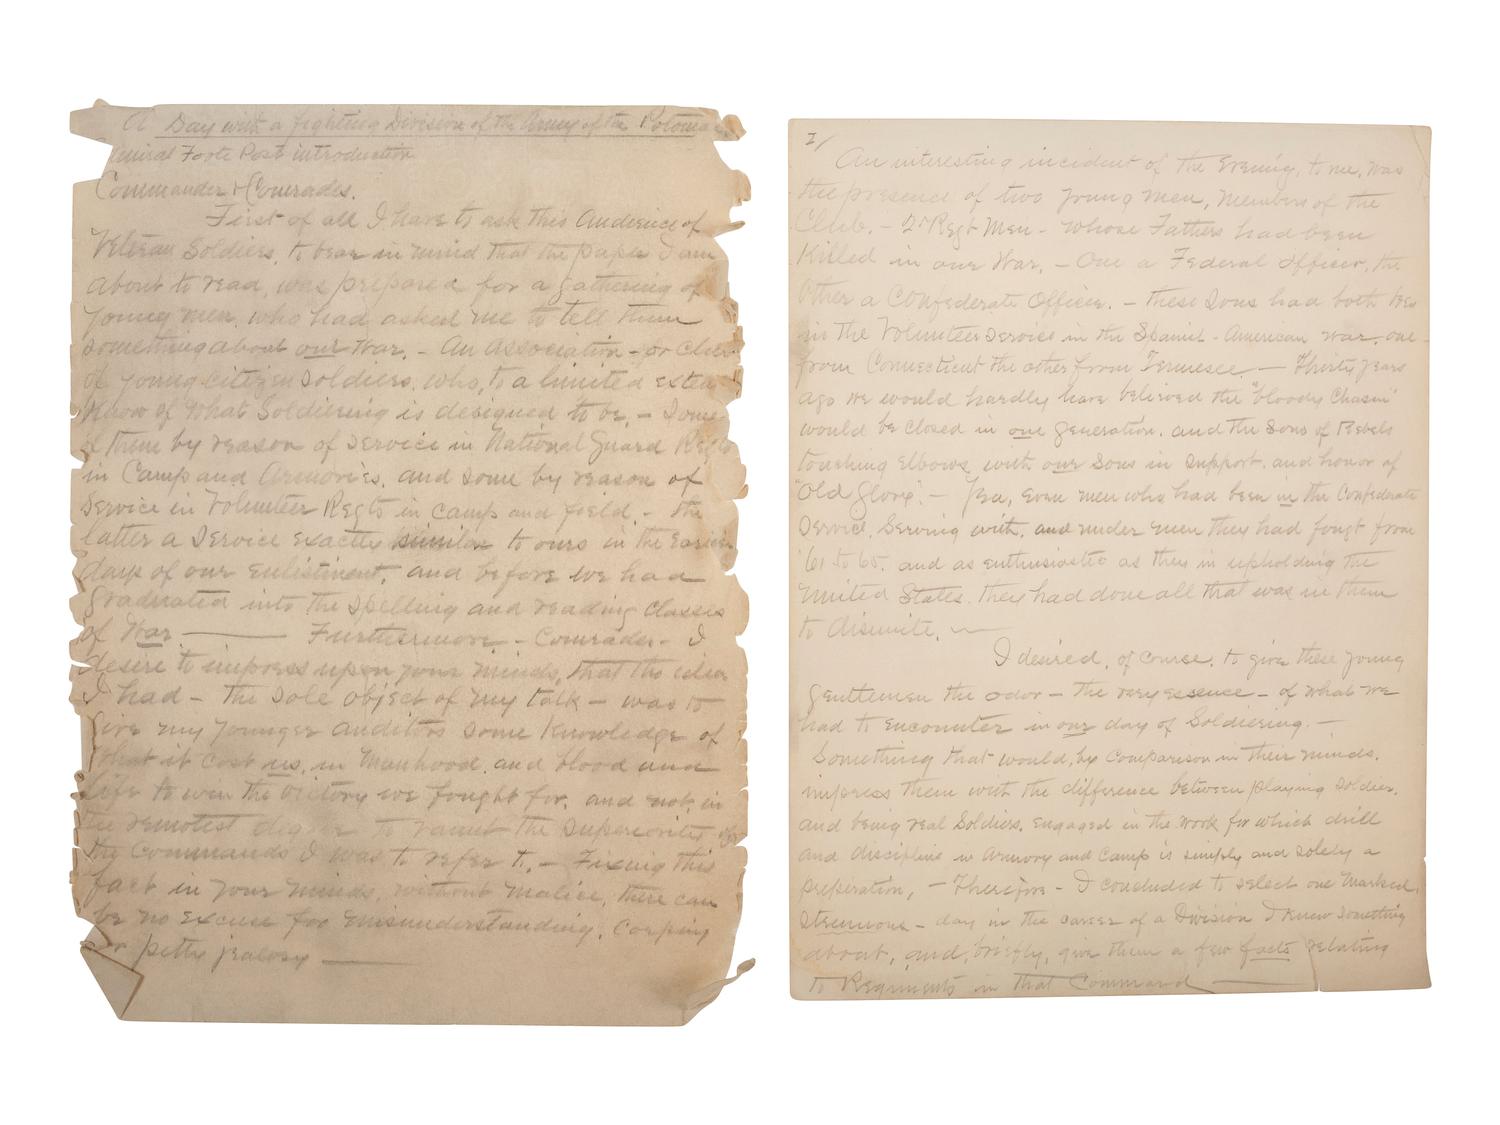 A Day with a fighting Division of the Army of the Potomac
Foote Post introduction
Commander & Comrades.
First of all I have to ask this Audience of
Veteran Soldiers, to bear in mind that the paper I am
about to read, was prepared for a gathering of
young men, who had asked me to tell them
something about our War. - An Association - or Club
of young citizen soldiers, who, to a limited exten
know of what Soldiering is designed to be, - Some
of them by reason of service in National Guard Regts
in Camp and Armories, and some by reason of
Service in Volunteer Regts in camp and field. - the
latter a Service exactly similar to ours in the Earlier
days of our enlistment, and before we had
graduated into the spelling and reading classes
of War — Furthermore - Comrades - I
desire to impress upon your minds, that the idea
I had - the sole object of my talk - was to
give my younger auditors some knowledge of
what it cost us, in Manhood, and blood and
life to win the victory we fought for, and not, in
the remotest degree to vaunt the superiority of
the Commands I was to refer to. - Fixing this
fact in your minds, without malice, there can
be no excuse for misunderstanding, Carping
or petty jealosy —
2/
An interesting incident of the Evening, to me, was
the presence of two young men, members of the
Club. - 2d Regt Men - whose Fathers had been
Killed in our War. - One a Federal Officer, the
other a Confederate Officer. - these Sons had both been
in the Volunteer service in the Spanish-American War, one
from Connecticut the other from Tennesee. - Thirty years
ago we would hardly have believed the "bloody Chasm"
would be closed in one generation, and the Sons of Rebels
touching Elbows with our Sons in support, and honor of
"Old Glory". - Yea, even men who had been in the Confederate
Service, Serving with, and under men they had fought from
'61 to 65, and as enthusiastic as they in upholding the
United States, they had done all that was in them
to disunite. —
I desired, of course, to give these young
Gentlemen the odor - the very essence - of what we
had to encounter in our day of Soldiering. -
Something that would, by Comparison in their minds,
impress them with the difference between playing Soldier,
and being real Soldiers, engaged in the work for which drill
and discipline in Armory and Camp is simply and solely a
preperation, - Therefore - I concluded to select one marked,
Strenuous - day in the career of a Division I knew something
about, and, briefly, give them a few facts relating
to Regiments in that Command —